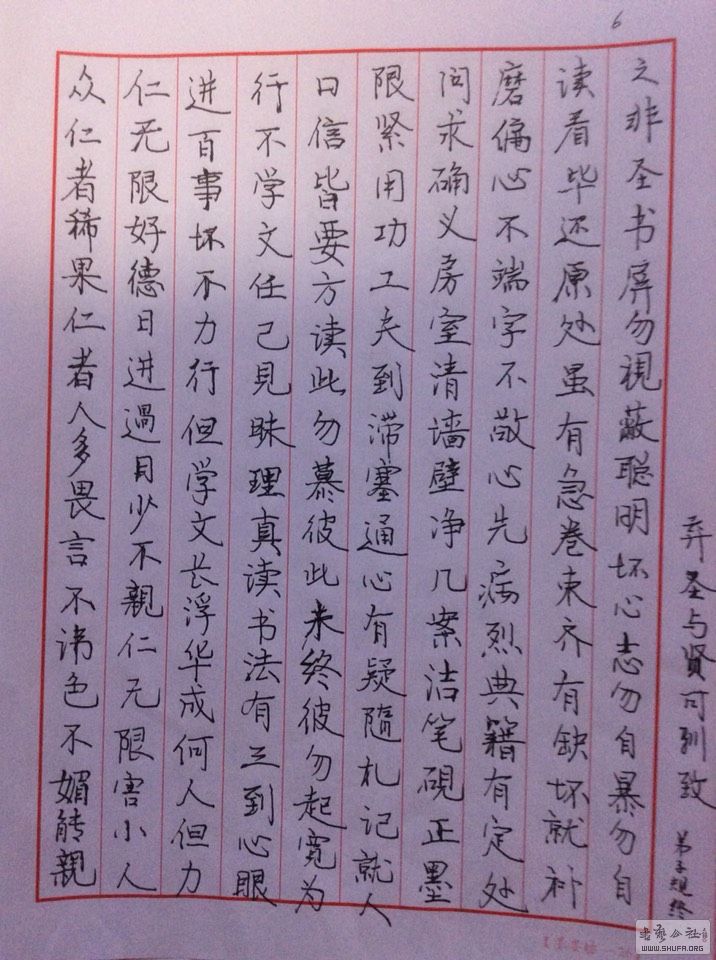 6
众仁者稀果仁者人多畏言不讳色不媚能親
仁无限好德日进過日少不親仁无限害小人
进百事坏不力行但学文长浮华成何人但力
行不学文任己見昧理真读书法有三到心眼
日信皆要方读此勿慕彼此未终彼勿起宽为
限紧用功工夫到滞塞通心有疑隨札记就人
问求确义房室清墙壁净几案洁笔硯正墨
磨偏心不端字不敬心先病烈典籍有定处
读看毕还原处虽有急卷束齐有缺坏就补
之非圣书屏勿視蔽聪明坏心志勿自暴勿自
弃圣与贤可驯致 弟子规终
WWW.SHUFA.ORG